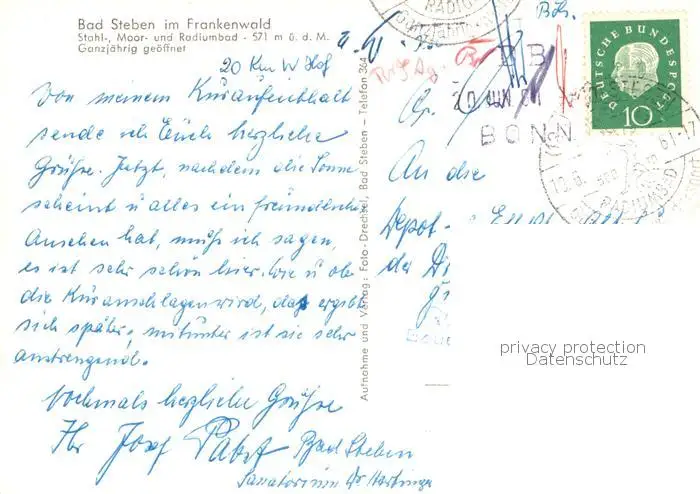 Bad Steben im Frankenwald
Stahl-, Moor- und Radiumbad - 571 m ü. d. M.
Ganzjährig geöffnet
20 Km W Hof
Von meinem Kuraufenthalt
sende ich Euch herzliche
Grüße. Jetzt, nachdem die Sonne
scheint u alles ein freundliches
Aussehen hat, muß ich sagen,
es ist sehr schön hier. Wie u ob
die Kur anschlagen wird, das ergibt
sich später, mitunter ist sie sehr
anstrengend.
Nochmals herzliche Grüße
Ihr Josef Pabst Bad Steben
Sanatorium Dr Hartinger
Aufnahme und Verlag: Foto-Drechsel, Bad Steben - Telefon 364
BONN
An die
Depot-
der
DEUTSCHE BUNDESPOST
10
RADIUMBAD
privacy protection
Datenschutz